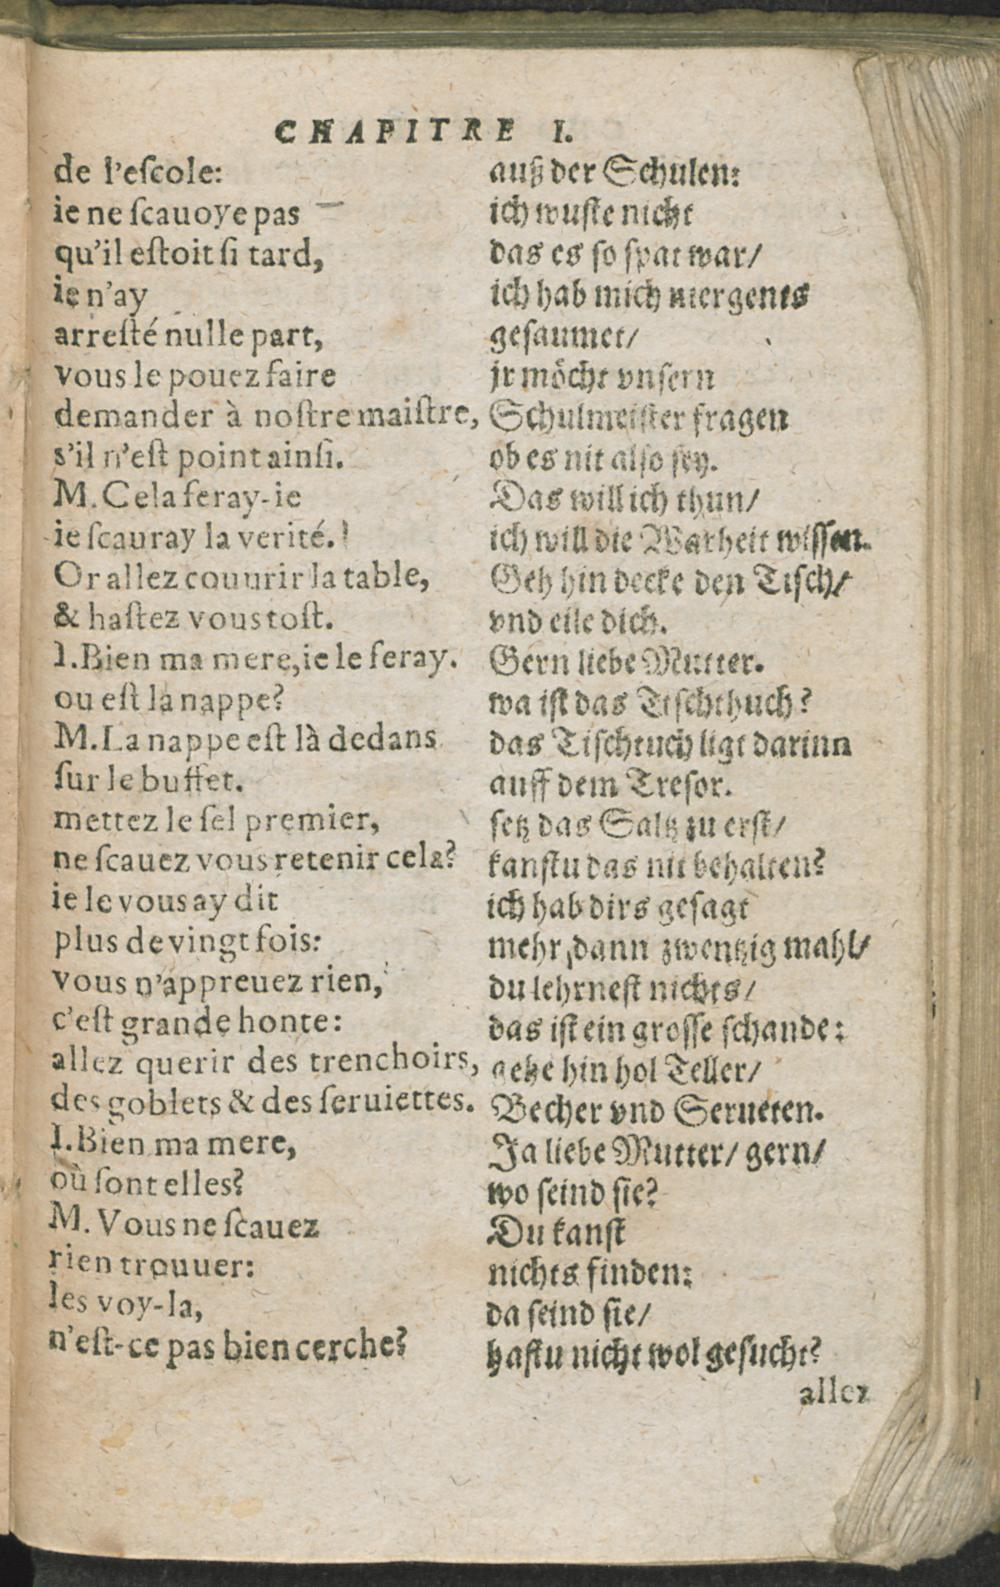 CHAPITRE I.
de l'eſcole:
ie ne ſcauoye pas
qu'il eſtoit ſi tard,
ie n'ay
arreſté nulle part,
vous le pouez faire
demander à noſtre maiſtre,
s'il n'eſt point ainſi.
M. Cela feray-ie
ie ſcauray la verité.
Or allez couurir la table,
& haſtez vous toſt.
I. Bien ma mere, ie le feray.
ou eſt la nappe?
M. La nappe eſt là dedans
ſur le buffet.
mettez le ſel premier,
ne ſcauez vous retenir cela?
ie le vous ay dit
plus de vingt fois:
vous n'appreuez rien,
c'eſt grande honte:
allez querir des trenchoirs,
des goblets & des ſeruiettes.
I. Bien ma mere,
où ſont elles?
M. Vous ne ſcauez
rien trouuer:
les voy-la,
n'eſt-ce pas bien cerche?
auß der Schulen:
ich wuſte nicht
das es ſo ſpat war/
ich hab mich niergents
geſaumet/
jr möcht vnſern
Schulmeiſter fragen
ob es nit alſo ſey.
Das will ich thun/
ich will die Warheit wiſſen.
Geh hin decke den Tiſch/
vnd eile dich.
Gern liebe Mutter.
wa iſt das Tiſchthuch?
das Tiſchtuch ligt darinn
auff dem Treſor.
ſetz das Saltz zu erſt/
kanſtu das nit behalten?
ich hab dirs geſagt
mehr dann zwentzig mahl/
du lehrneſt nichts/
das iſt ein groſſe ſchande:
gehe hin hol Teller/
Becher vnd Serueten.
Ja liebe Mutter/ gern/
wo ſeind ſie?
Du kanſt
nichts finden:
da ſeind ſie/
haſtu nicht wol geſucht?
allez